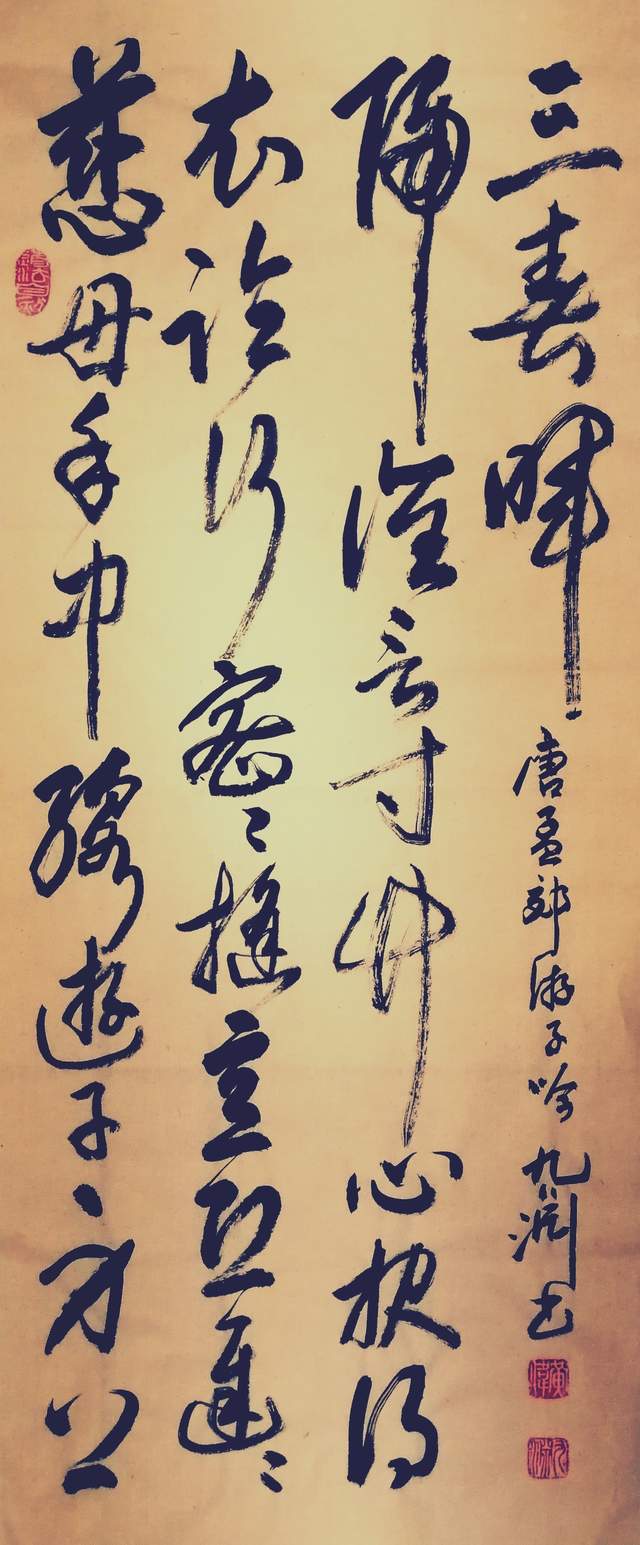 慈母手中線遊子身上
衣臨行密〻縫意恐遲〻
歸誰言寸草心報得
三春暉
唐孟郊游子吟 九淵书